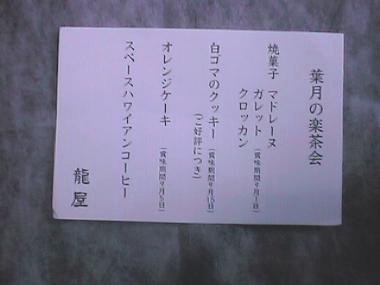 葉月の楽茶会
焼菓子 マドレーヌ
ガレット
クロッカン
(賞味期間9月1日)
白ゴマのクッキー
(ご好評につき)
(賞味期間9月15日)
オレンジケーキ
(賞味期間9月5日)
スペースハワイアンコーヒー
龍屋